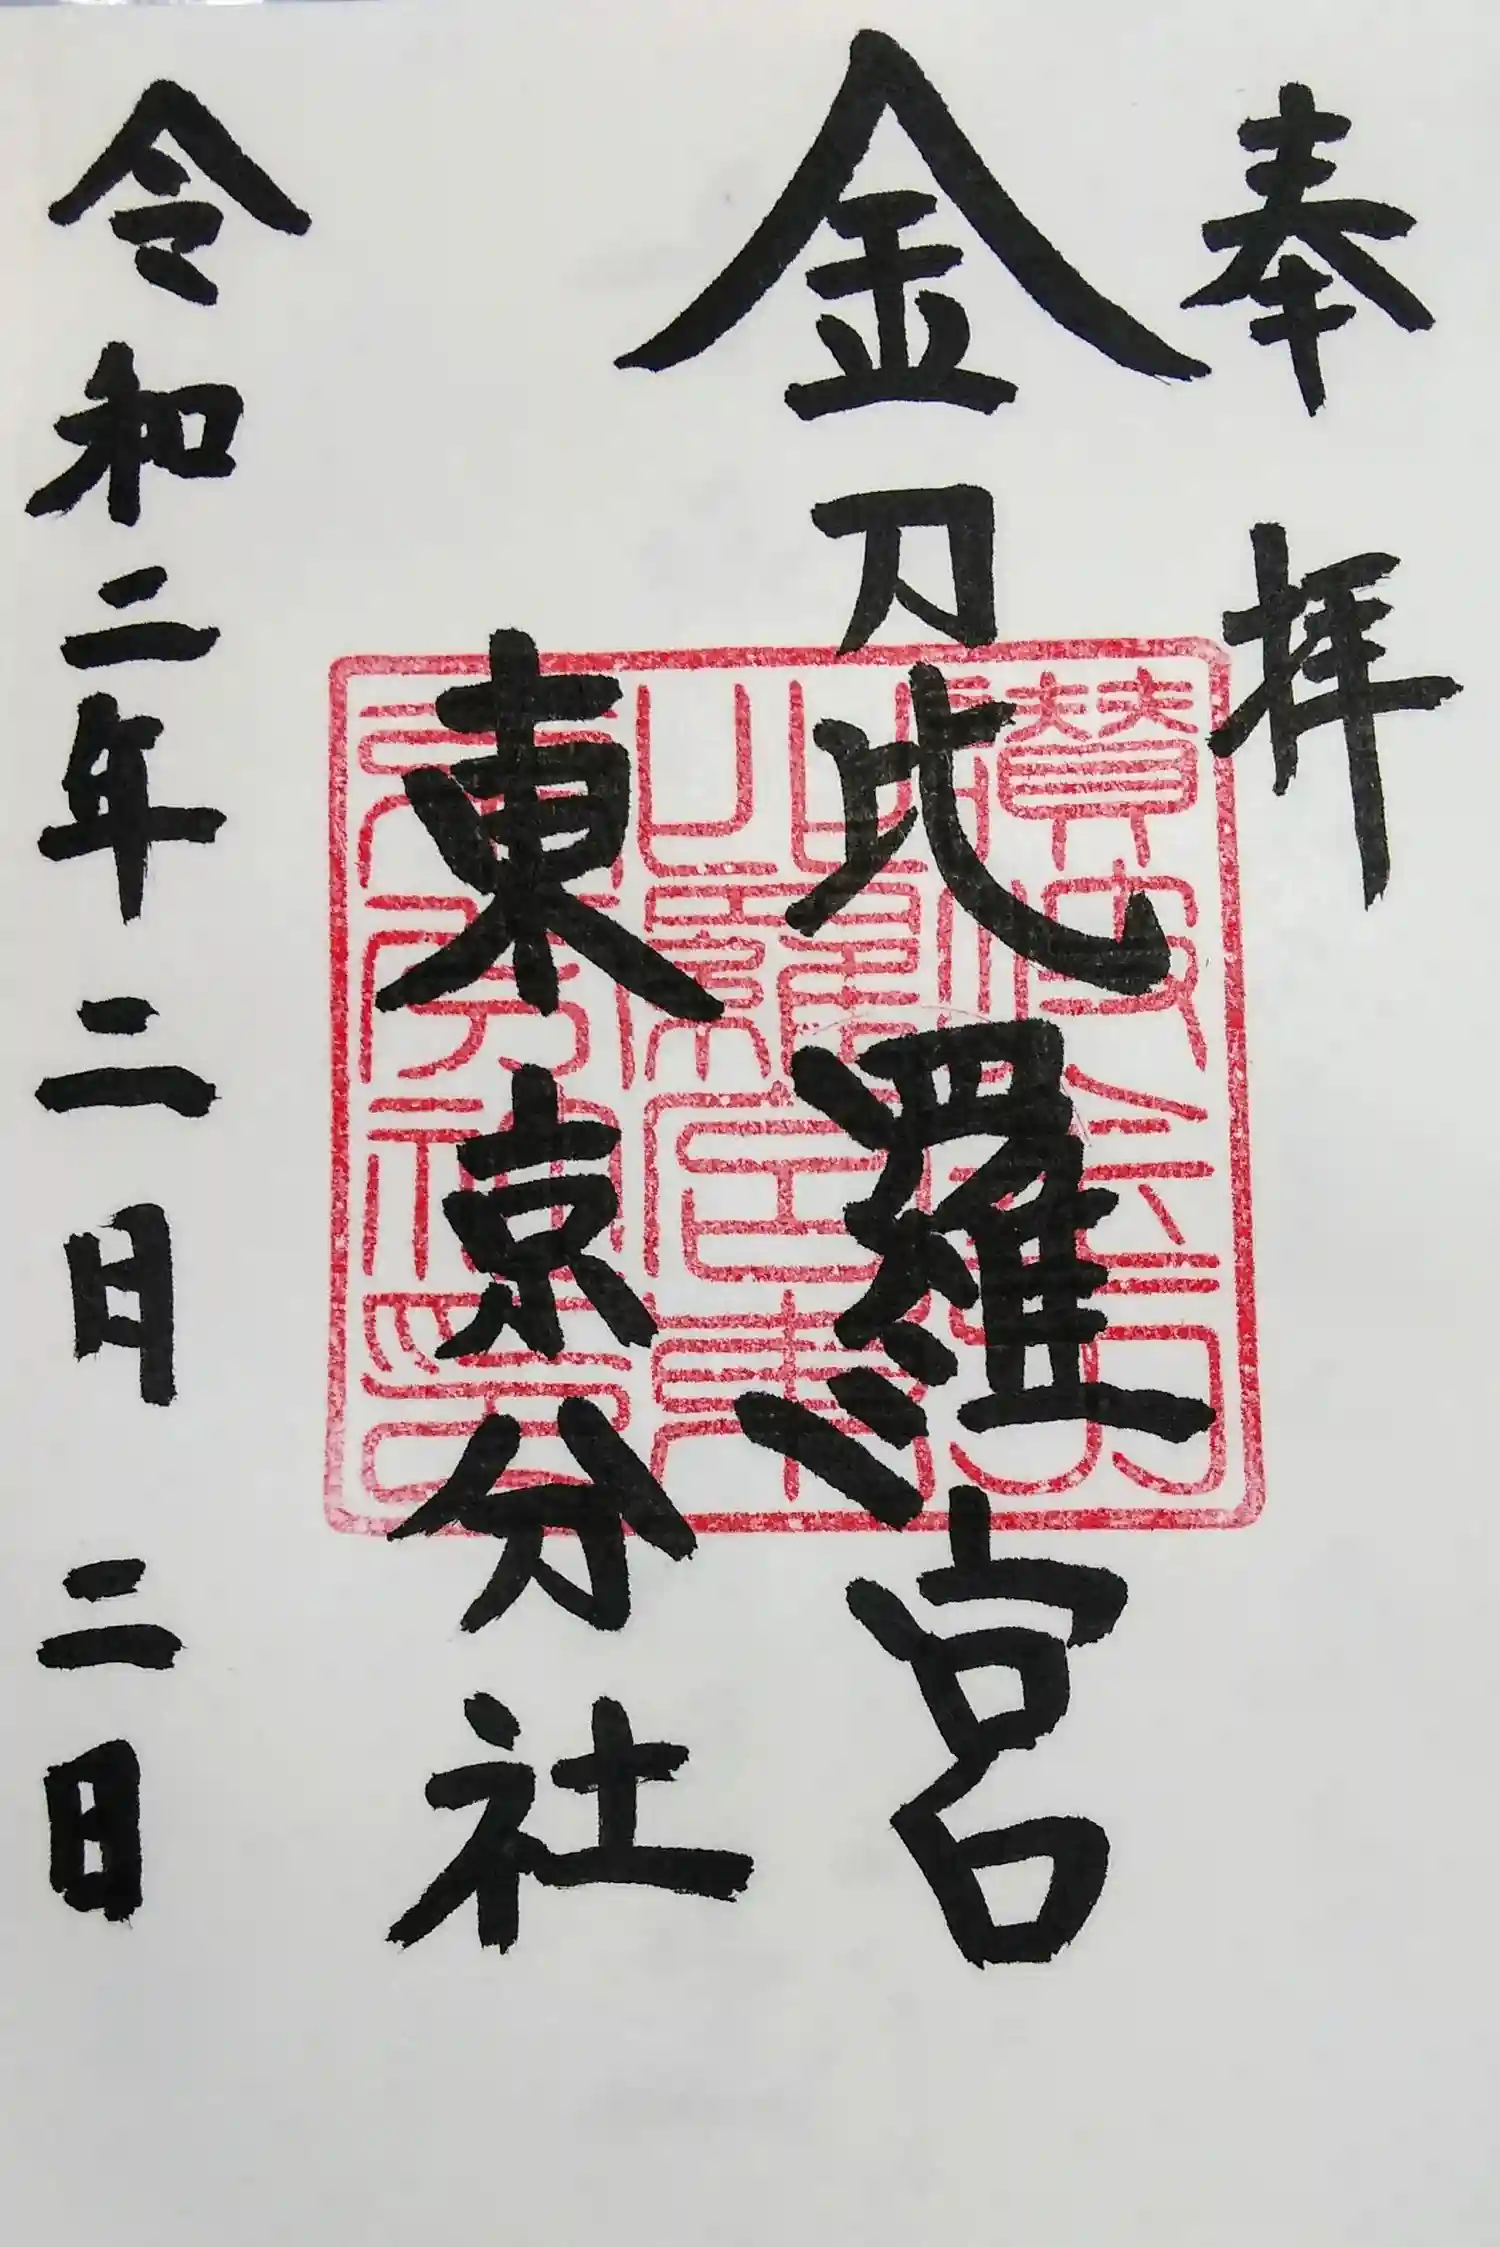 奉拝
金刀比羅宮
東京分社
令和二年二月二日